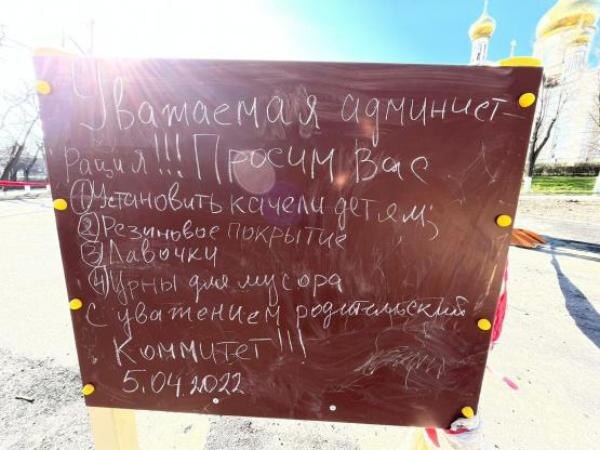 Уважаемая админист-
рация!!! Просим Вас
① Установить качели детям;
② Резиновое покрытие
③ Лавочки
④ Урны для мусора
С уважением родительский
Коммитет!!!
5.04.2022